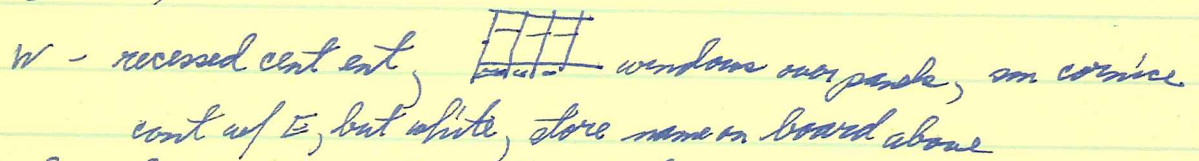 W - recessed cent ent, windows over panels, sm cornice
cont w/ E, but white, store name on board above